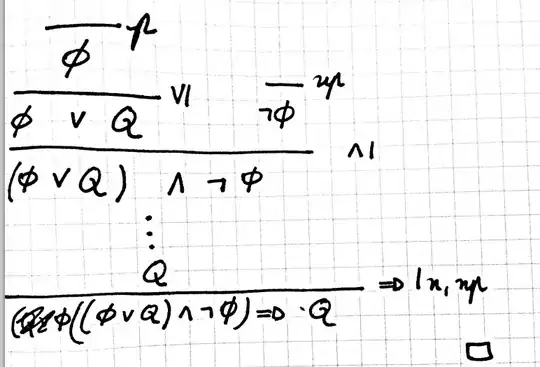 ϕ p
ϕ ∨ Q ∨I ¬ϕ np
(ϕ ∨ Q) ∧ ¬ϕ ∧I
⋮
Q
((ϕ ∨ Q) ∧ ¬ϕ) ⇒ Q ⇒ I